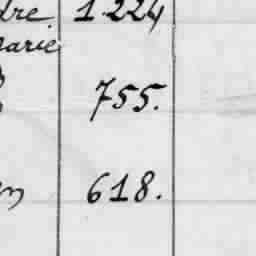 dre. 1224
marie
755.
en 618.